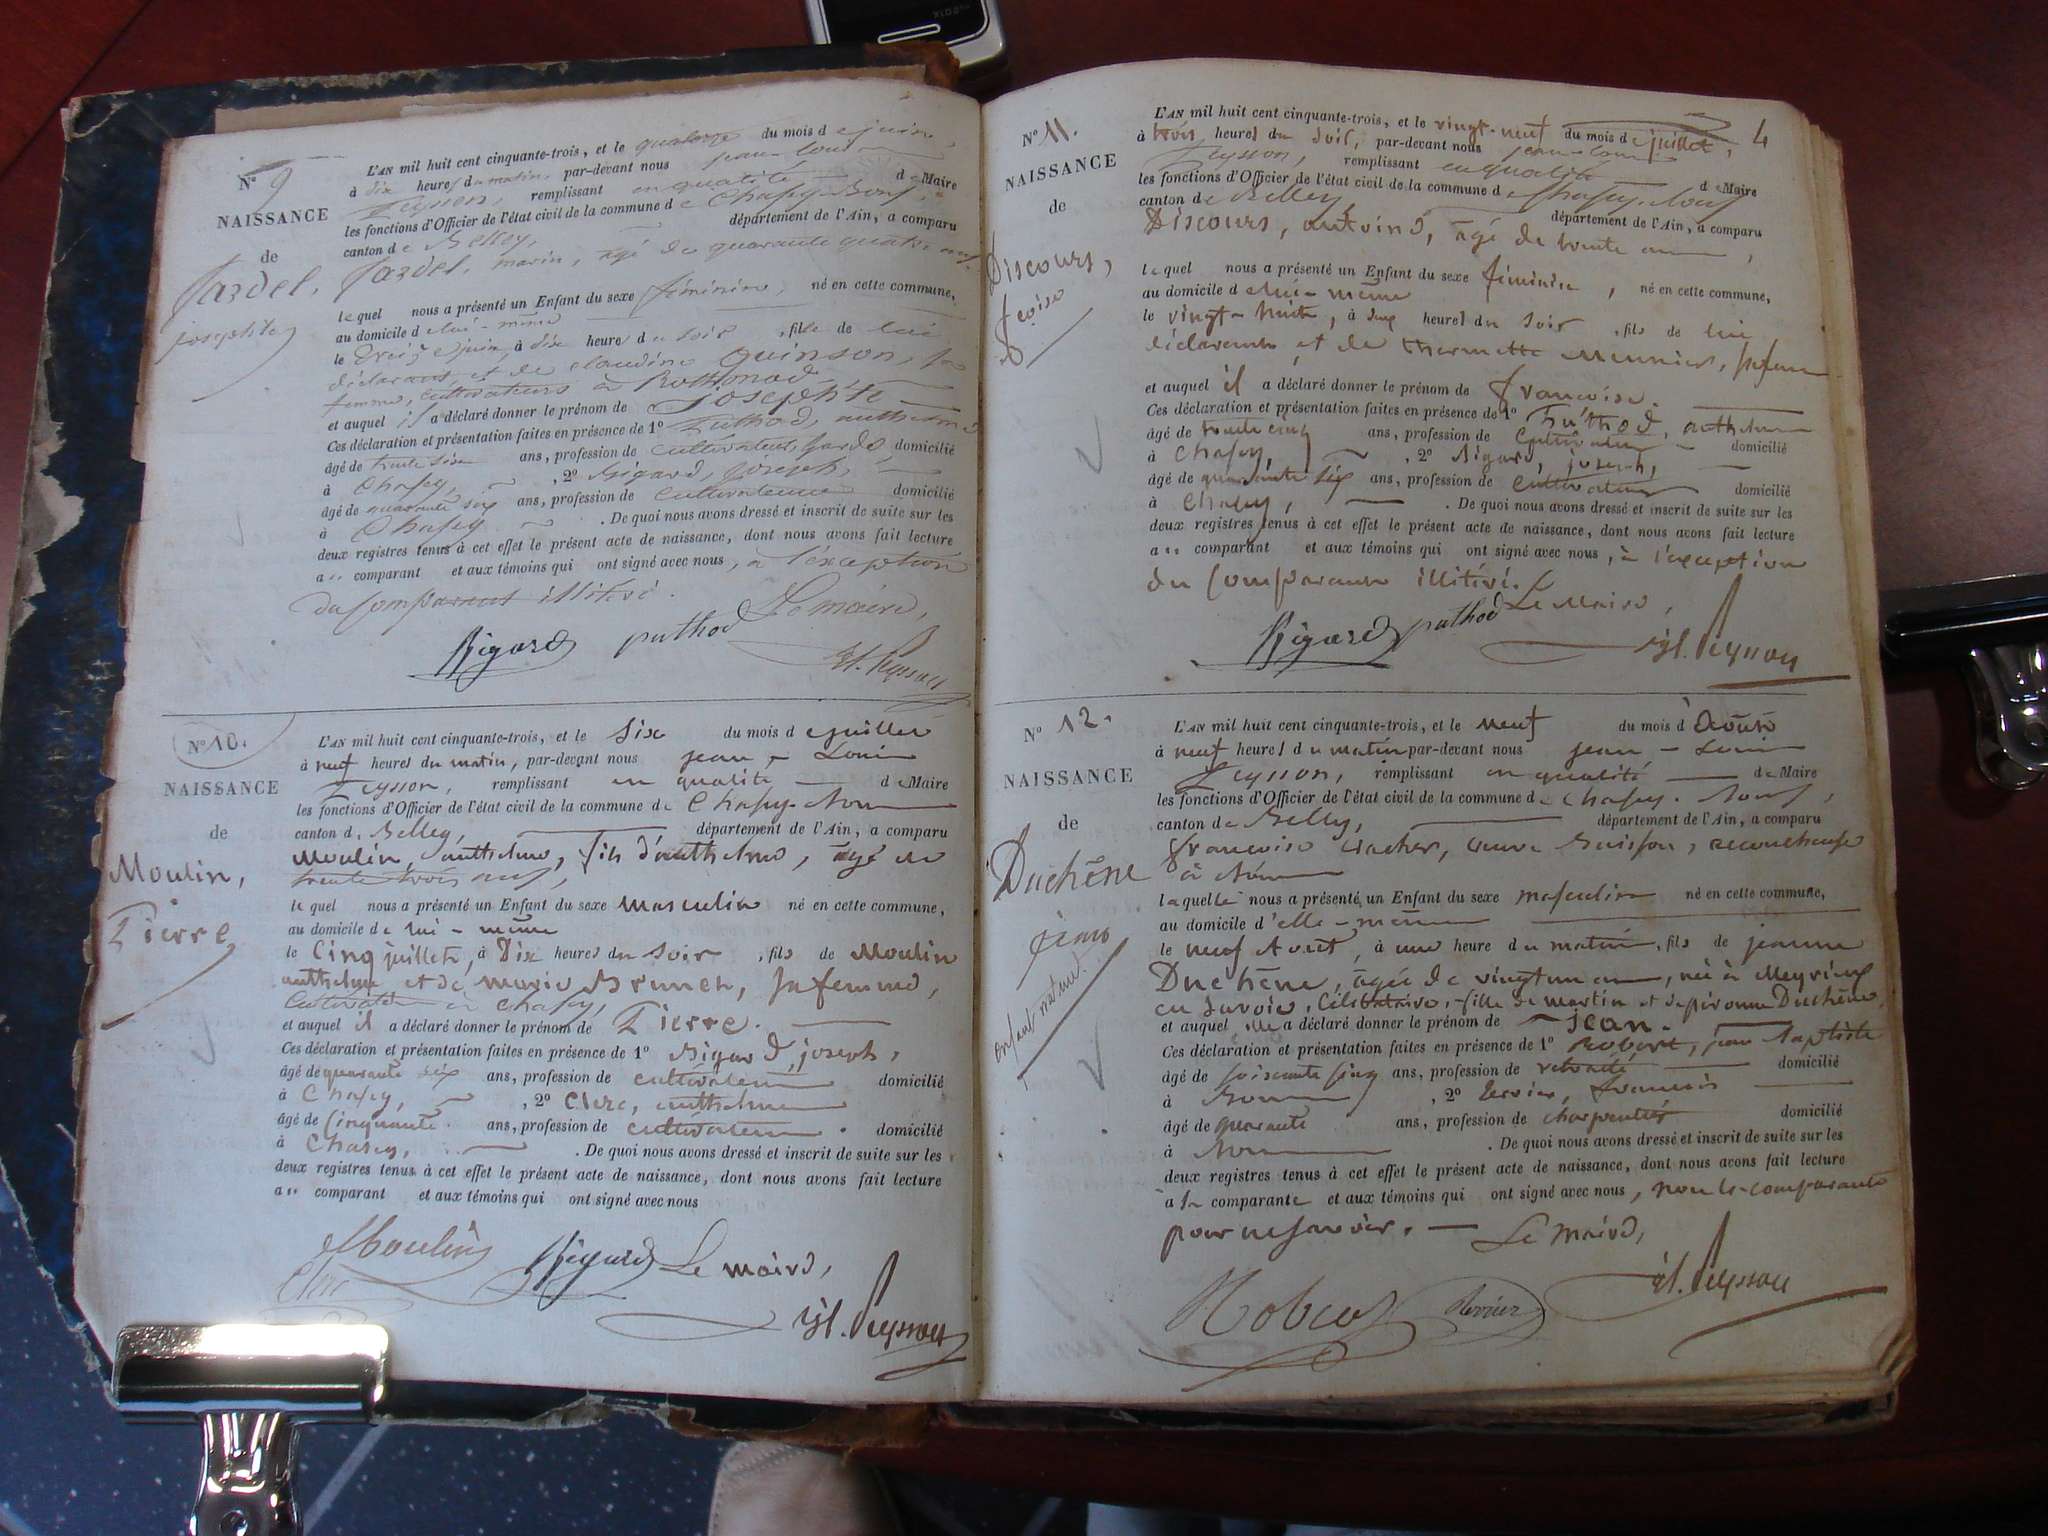 N° 9
NAISSANCE
de
Jardel,
josephte
L'AN mil huit cent cinquante-trois, et le quatorze du mois de juin,
à dix heures du matin, par-devant nous jean-Louis
Peysson, remplissant en qualité de Maire
les fonctions d'Officier de l'état civil de la commune de Chasey-Bons,
canton de Belley, département de l'Ain, a comparu
Jardel, marin, âgé de quarante quatre ans,
lequel nous a présenté un Enfant du sexe féminin, né en cette commune,
au domicile de lui-même
le treize juin, à dix heures du soir, fils de lui
déclarant et de claudine Quinson, sa
femme, cultivateurs à Rothonod
et auquel il a déclaré donner le prénom de josephte
Ces déclaration et présentation faites en présence de 1° Puthod, anthelme
âgé de trente six ans, profession de cultivateur, garde domicilié
à Chasey, , 2° Rigard, joseph,
âgé de quarante six ans, profession de cultivateur domicilié
à Chasey . De quoi nous avons dressé et inscrit de suite sur les
deux registres tenus à cet effet le présent acte de naissance, dont nous avons fait lecture
au comparant et aux témoins qui ont signé avec nous, à l'exception
du comparant illitéré.
Le maire,
Rigard puthod jl. Peysson
N° 10.
NAISSANCE
de
Moulin,
Pierre
L'AN mil huit cent cinquante-trois, et le six du mois de juillet
à neuf heures du matin, par-devant nous jean-Louis
Peysson, remplissant en qualité de Maire
les fonctions d'Officier de l'état civil de la commune de Chasey-Bons
canton de Belley, département de l'Ain, a comparu
Moulin, anthelme, fils d'anthelme, âgé de
trente trois ans,
lequel nous a présenté un Enfant du sexe masculin né en cette commune,
au domicile de lui-même
le cinq juillet, à Dix heures du soir, fils de Moulin
anthelme et de marie Brunet, sa femme,
à Chasey,
et auquel il a déclaré donner le prénom de Pierre.
Ces déclaration et présentation faites en présence de 1° Rigard, joseph,
âgé de quarante six ans, profession de cultivateur domicilié
à Chasey, , 2° Clerc, anthelme
âgé de cinquante ans, profession de cultivateur domicilié
à Chasey, . De quoi nous avons dressé et inscrit de suite sur les
deux registres tenus à cet effet le présent acte de naissance, dont nous avons fait lecture
au comparant et aux témoins qui ont signé avec nous
Moulin Rigard Le maire,
Clerc jl. Peysson
4
N° 11.
NAISSANCE
de
Discours,
L'AN mil huit cent cinquante-trois, et le vingt-neuf du mois de juillet,
à trois heures du soir, par-devant nous jean-Louis
Peysson, remplissant en qualité de Maire
les fonctions d'Officier de l'état civil de la commune de Chasey-Bons
canton de Belley, département de l'Ain, a comparu
Discours, antoine, âgé de trente ans,
lequel nous a présenté un Enfant du sexe féminin, né en cette commune,
au domicile de lui-même
le vingt-huit, à heures du soir, fils de lui
déclarant et de thermette Meunier, sa femme
et auquel il a déclaré donner le prénom de françoise.
Ces déclaration et présentation faites en présence de 1° Puthod, anthelme
âgé de trente cinq ans, profession de cultivateur domicilié
à Chasey, , 2° Rigard, joseph,
âgé de quarante six ans, profession de cultivateur domicilié
à Chasey, . De quoi nous avons dressé et inscrit de suite sur les
deux registres tenus à cet effet le présent acte de naissance, dont nous avons fait lecture
au comparant et aux témoins qui ont signé avec nous, à l'exception
du comparant illitéré. Le Maire,
Rigard puthod jl. Peysson
N° 12.
NAISSANCE
de
Duchêne
jean
enfant naturel
L'AN mil huit cent cinquante-trois, et le neuf du mois d'Août
à neuf heures du matin par-devant nous jean-Louis
Peysson, remplissant en qualité de Maire
les fonctions d'Officier de l'état civil de la commune de Chasey-Bons,
canton de Belley, département de l'Ain, a comparu
françoise veuve Buisson, accoucheuse
à Bons
laquelle nous a présenté un Enfant du sexe masculin né en cette commune,
au domicile d'elle-même
le neuf Août, à une heure du matin, fils de jeanne
Duchêne, âgée de vingt un ans, née à Meyrieux
en Savoie, Célibataire, fille de martin et de peronne Duchêne,
et auquel elle a déclaré donner le prénom de jean.
Ces déclaration et présentation faites en présence de 1° Robert, jean Baptiste
âgé de soixante cinq ans, profession de retraité domicilié
à Bons , 2° Revier, françois
âgé de quarante ans, profession de charpentier domicilié
à Bons . De quoi nous avons dressé et inscrit de suite sur les
deux registres tenus à cet effet le présent acte de naissance, dont nous avons fait lecture
à la comparante et aux témoins qui ont signé avec nous, non la comparante
pour ne savoir. Le maire,
jl. Peysson